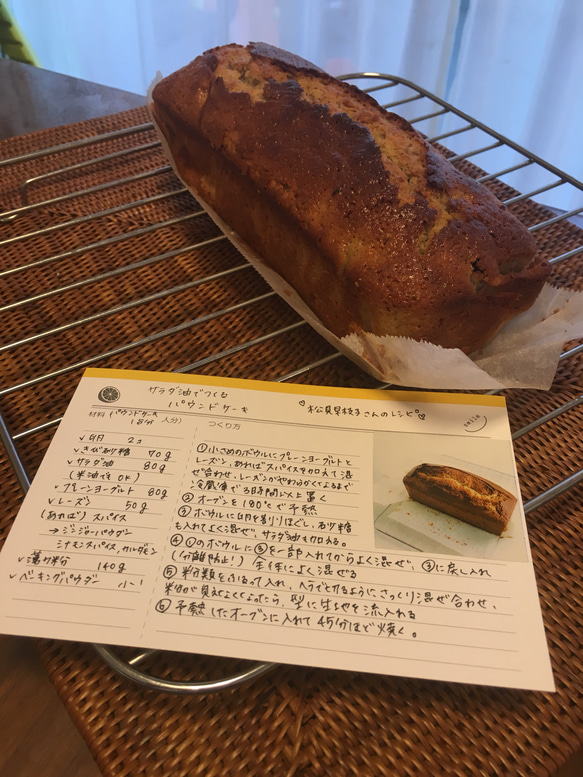 サラダ油でつくる
パウンドケーキ
♡松見早枝子さんのレシピ♡
材料 パウンドケーキ
1台分 人分)
つくり方
✓卵 2コ
✓きび砂糖 70g
✓サラダ油 80g
(米油でもOK)
✓プレーンヨーグルト 80g
✓レーズン 50g
(あれば)スパイス
→ジンジャーパウダー
シナモンスパイス、カルダモン
✓薄力粉 140g
✓ベーキングパウダー 小1
①小さめのボウルにプレーンヨーグルトと
レーズン、あればスパイスを加えて混
ぜ合わせ、レーズンがやわらかくなるまで
冷蔵庫で3時間以上置く
②オーブンを180℃で予熱
③ボウルに卵を割りほぐし、砂糖
も入れてよく混ぜ、サラダ油も加える。
④①のボウルに③を一部入れてからよく混ぜ、③に戻し入れ
(分離防止!) 全体によく混ぜる
⑤粉類をふるって入れ、ヘラできるように、さっくり混ぜ合わせ、
粉が見えなくなったら、型に生地を流入れる
⑥予熱したオーブンに入れて45分ほど焼く。